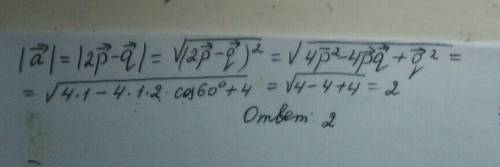 |a⃗| = |2p⃗-q⃗| = √(2p⃗-q⃗)² = √4p⃗²-4p⃗q⃗+q⃗² =
= √4·1-4·1·2·cos60°+4 = √4-4+4 = 2
Ответ: 2